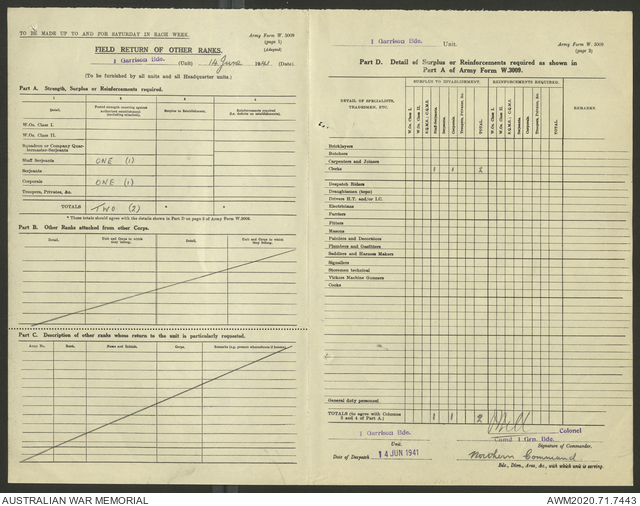 TO BE MADE UP TO AND FOR SATURDAY IN EACH WEEK.
Army Form W. 3009
(page 1)
(Adapted)
FIELD RETURN OF OTHER RANKS.
1 Garrison Bde. (Unit) 14 June 1941 (Date).
(To be furnished by all units and all Headquarter units.)
Part A. Strength, Surplus or Reinforcements required.
1 2 3 4
Detail. Surplus to Establishment. Reinforcements required
W.Os. Class I.
W.Os. Class II.
Squadron or Company Quar-
termaster-Serjeants
Staff Serjeants ONE (1)
Serjeants
Corporals ONE (1)
Troopers, Privates, &c.
TOTALS TWO (2) * *
* These totals should agree with the details shown in Part D on page 2 of Army Form W.3009.
Part B. Other Ranks attached from other Corps.
Detail. Unit and Corps to which they belong. Detail. Unit and Corps to which they belong.
Part C. Description of other ranks whose return to the unit is particularly requested.
Army No. Rank. Name and Initials. Corps. Remarks (e.g. present whereabouts if known).
1 Garrison Bde. Unit.
Army Form W. 3009
(page 2)
Part D. Detail of Surplus or Reinforcements required as shown in
Part A of Army Form W.3009.
DETAIL OF SPECIALISTS, TRADESMEN, ETC.
SURPLUS TO ESTABLISHMENT. REINFORCEMENTS REQUIRED.
W.Os. Class I. W.Os. Class II. S.Q.M.S. C.Q.M.S. Staff-Serjeants. Serjeants. Corporals. Troopers, Privates, &c. TOTAL. W.Os. Class I. W.Os. Class II. S.Q.M.S. C.Q.M.S. Staff-Serjeants. Serjeants. Corporals. Troopers, Privates, &c. TOTAL.
REMARKS
Bricklayers
Butchers
Carpenters and Joiners
Clerks 1 1 2
Despatch Riders
Draughtsmen (topo)
Drivers H.T. and/or I.C.
Electricians
Farriers
Fitters
Masons
Painters and Decorators
Plumbers and Gasfitters
Saddlers and Harness Makers
Signallers
Storemen technical
Vickers Machine Gunners
Cooks
General duty personnel
TOTALS (to agree with Columns
3 and 4 of Part A.) 1 1 2
Colonel
1 Garrison Bde.
Unit.
Comd 1 Grn. Bde.
Signature of Commander.
Date of Despatch 14 JUN 1941
Northern Command
Bde., Divn., Area, &c., with which unit is serving.
AUSTRALIAN WAR MEMORIAL
AWM2020.71.7443